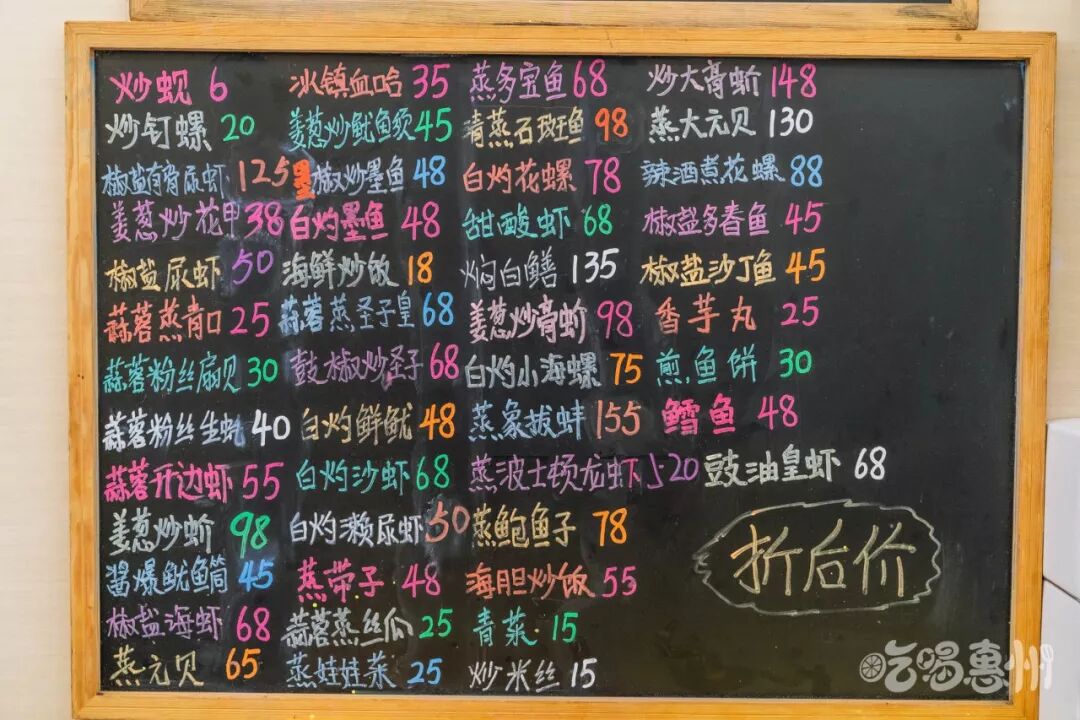 炒蚬 6
炒钉螺 20
椒盐有膏尿虾 125
姜葱炒花甲 38
椒盐尿虾 50
蒜蓉蒸青口 25
蒜蓉粉丝扇贝 30
蒜蓉粉丝生蚝 40
蒜蓉开边虾 55
姜葱炒蚧 98
酱爆鱿鱼筒 45
椒盐海虾 68
蒸元贝 65
冰镇血哈 35
姜葱炒鱿鱼须 45
椒炒墨鱼 48
白灼墨鱼 48
海鲜炒饭 18
蒜蓉蒸圣子皇 68
鼓椒炒圣子 68
白灼鲜鱿 48
白灼沙虾 68
白灼濑尿虾 50
蒸带子 48
蒜蓉蒸丝瓜 25
蒸娃娃菜 25
蒸多宝鱼 68
清蒸石斑鱼 98
白灼花螺 78
甜酸虾 68
焖白鳝 135
姜葱炒膏蚧 98
白灼小海螺 75
蒸象拔蚌 155
蒸波士顿龙虾 520
蒸鲍鱼子 78
海胆炒饭 55
青菜 15
炒米丝 15
炒大膏蚧 148
蒸大元贝 130
辣酒煮花螺 88
椒盐多春鱼 45
椒盐沙丁鱼 45
香芋丸 25
煎鱼饼 30
鳕鱼 48
豉油皇虾 68
折后价
吃喝惠州